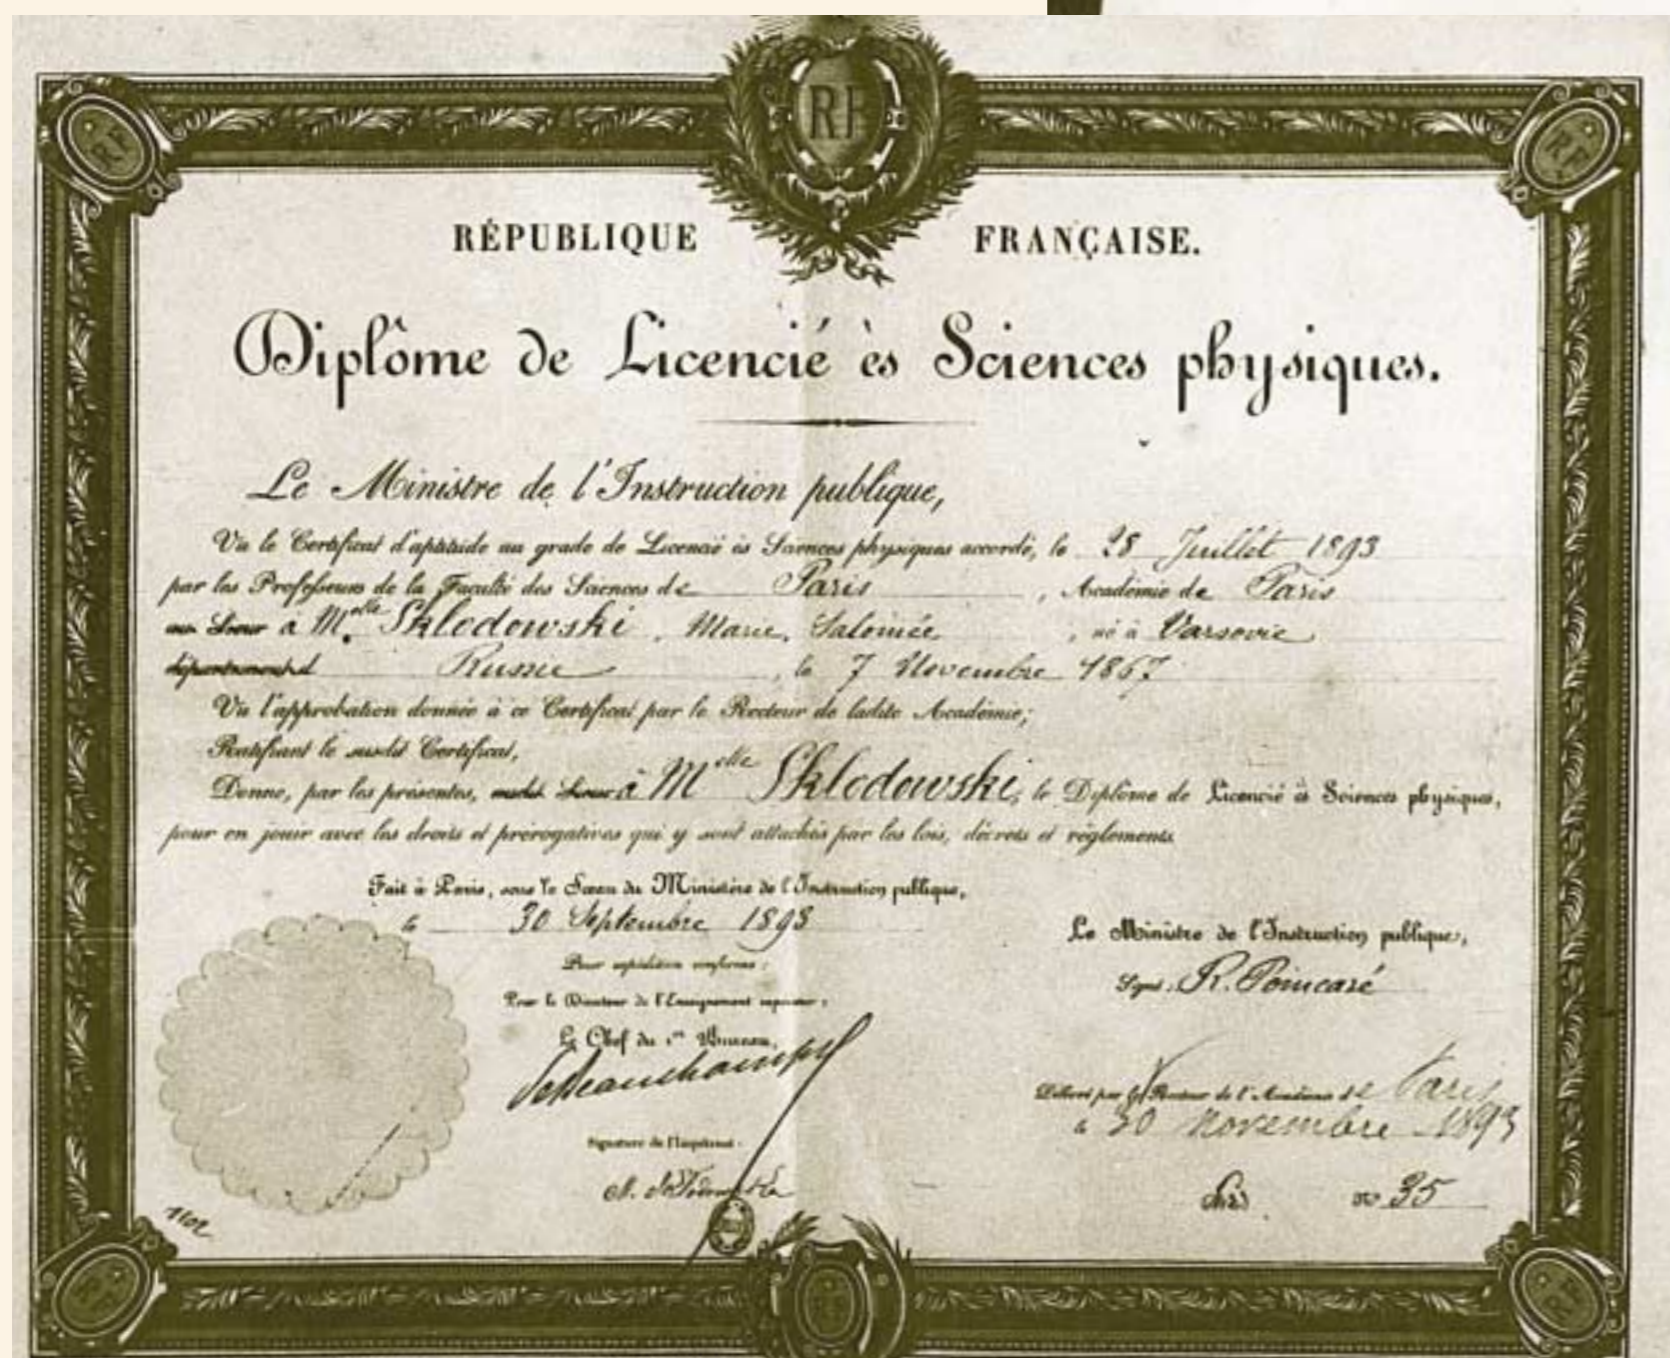 RF
RF
RF
RÉPUBLIQUE FRANÇAISE.
Diplôme de Licencié ès Sciences physiques.
Le Ministre de l'Instruction publique,
Vu le Certificat d'aptitude au grade de Licencié ès Sciences physiques accordé, le 28 Juillet 1893
par les Professeurs de la Faculté des Sciences de Paris, Académie de Paris
au Sieur à Melle Sklodowski, Marie, Salomée, né à Varsovie
département d Russie, le 7 Novembre 1867
Vu l'approbation donnée à ce Certificat par le Recteur de ladite Académie;
Ratifiant le susdit Certificat,
Donne, par les présentes, audit Sieur à Melle Sklodowski, le Diplôme de Licencié ès Sciences physiques,
pour en jouir avec les droits et prérogatives qui y sont attachés par les lois, décrets et règlements.
Fait à Paris, sous le Sceau du Ministère de l'Instruction publique,
le 30 Septembre 1893
Le Ministre de l'Instruction publique,
Pour expédition conforme:
Signé: R. Poincaré
Pour le Directeur de l'Enseignement supérieur:
Le Chef du 1er Bureau,
Délivré par le Recteur de l'Académie de Paris
le 30 Novembre 1893
Signature de l'Impétrant:
No 35
RF
RF
RF